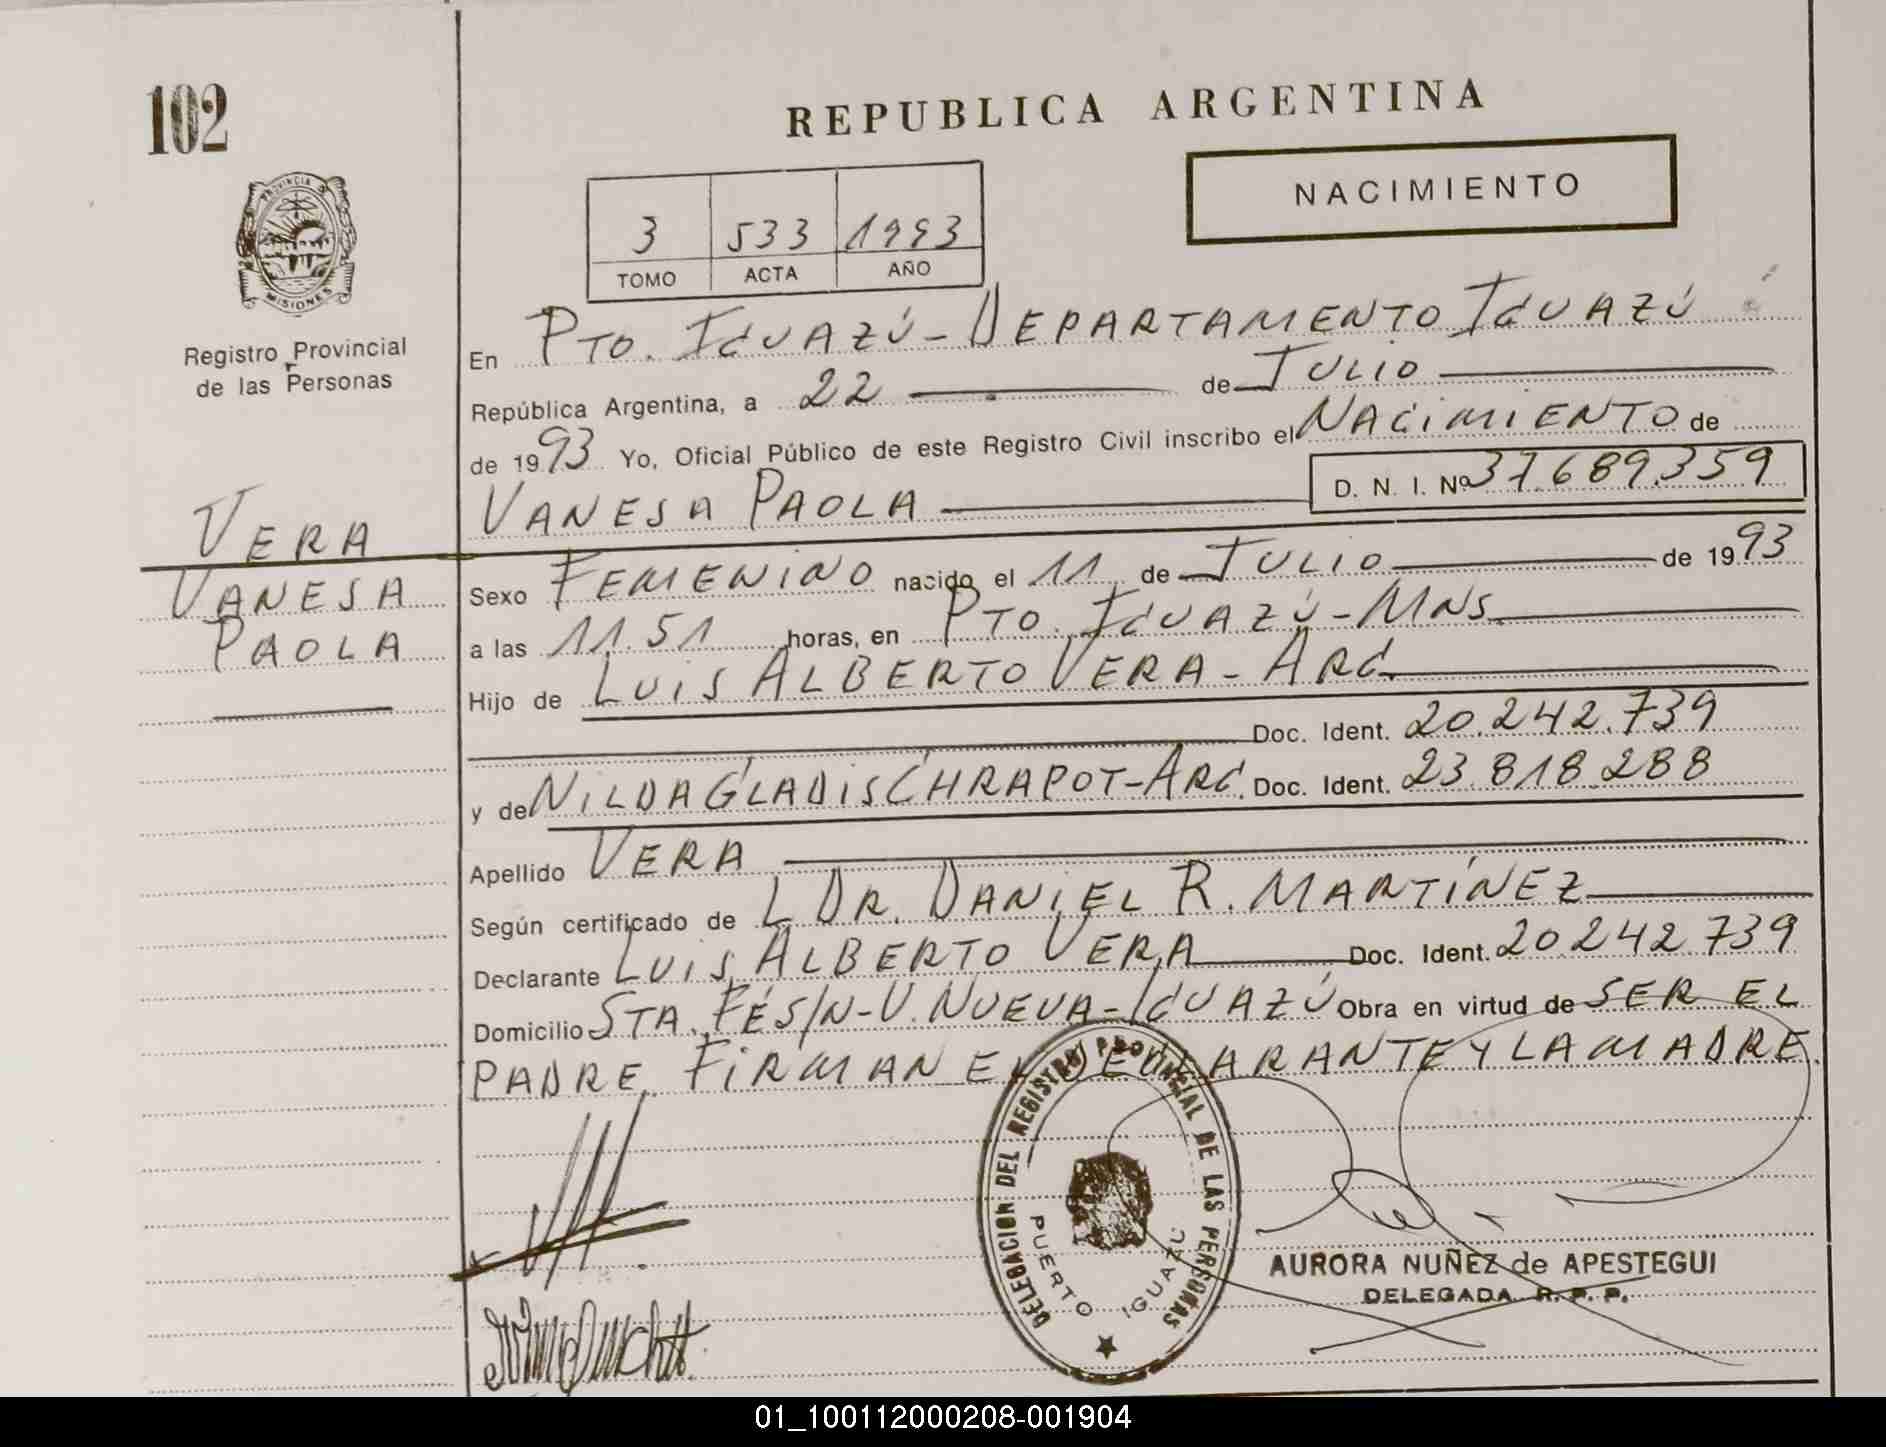 102
REPUBLICA ARGENTINA
NACIMIENTO
3 533 1993
TOMO ACTA AÑO
PROVINCIA D
MISIONES
Registro Provincial
de las Personas
En PTO. IGUAZÚ - DEPARTAMENTO IGUAZÚ
República Argentina, a 22 de JULIO
de 1993 Yo, Oficial Público de este Registro Civil inscribo el NACIMIENTO de
VANESA PAOLA D. N. I. Nº 37.689.359
VERA
VANESA
PAOLA
Sexo FEMENINO nacido el 11 de JULIO de 1993
a las 11.51 horas, en PTO. IGUAZÚ - MNS.
Hijo de LUIS ALBERTO VERA - ARG.
Doc. Ident. 20.242.739
y de NILDA GLADIS CHRAPOT - ARG. Doc. Ident. 23.818.288
Apellido VERA
Según certificado de L DR. DANIEL R. MARTÍNEZ
Declarante LUIS ALBERTO VERA Doc. Ident. 20.242.739
Domicilio STA. FÉ S/N - V. NUEVA - IGUAZÚ Obra en virtud de SER EL
PADRE. FIRMAN EL DECLARANTE Y LA MADRE.
DELEGACION DEL REGISTRO PROVINCIAL DE LAS PERSONAS
PUERTO IGUAZU
AURORA NUÑEZ de APESTEGUI
DELEGADA R. P. P.
01_100112000208-001904